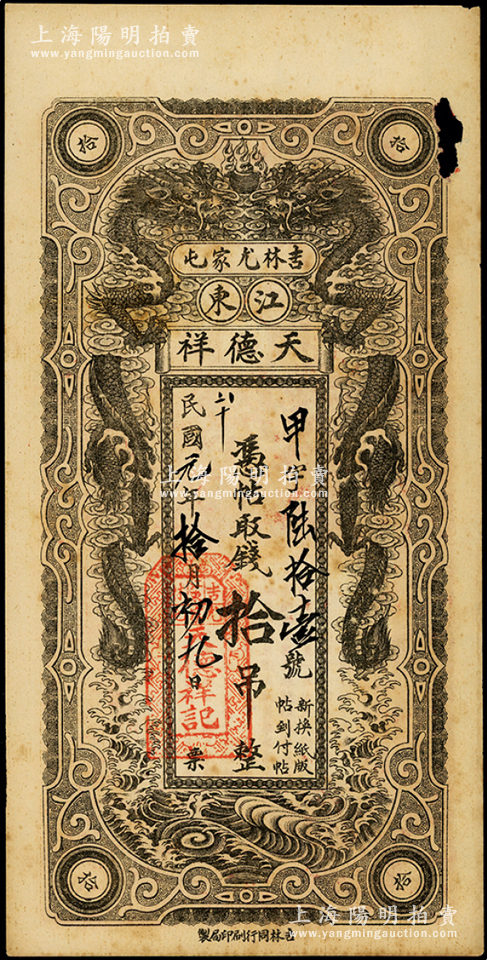 上海陽明拍賣
www.yangmingauction.com
拾
拾
吉林尤家屯
江東
天德祥
甲字陸拾壹號
新換紙版
帖到付帖
憑帖取錢拾吊整
民國元年拾月初九日票
德祥記
上海陽明拍賣
www.yangmingauction.com
拾
拾
吉林同行刷印局製
上海陽明拍賣
www.yangmingauction.com